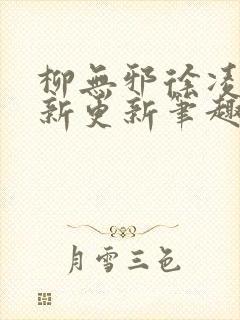 柳無邪徐凌
新更新筆趣
月雪三色